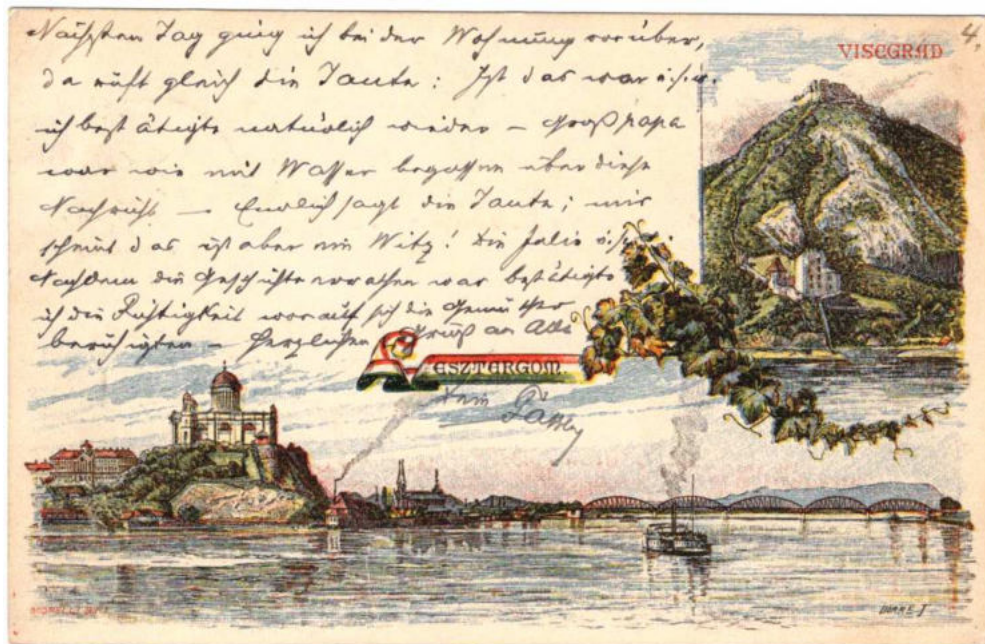 4.
Nächsten Tag ging ich bei der Wohnung vorüber,
da ruft gleich die Tante: Ist das wahr u.s.w.
ich bestätigte natürlich wieder – Großpapa
war wie mit Wasser begossen über diese
Nachricht – Endlich sagt die Tante; mir
scheint das ist aber ein Witz! Die Julie u.s.w.
Nachdem die Geschichte errathen war bestätigte
ich die Richtigkeit worauf sich die Gemüther
beruhigten – Herzlichen Gruß an Alle
VISEGRAD
ESZTERGOM
Dein
DÖRRE T